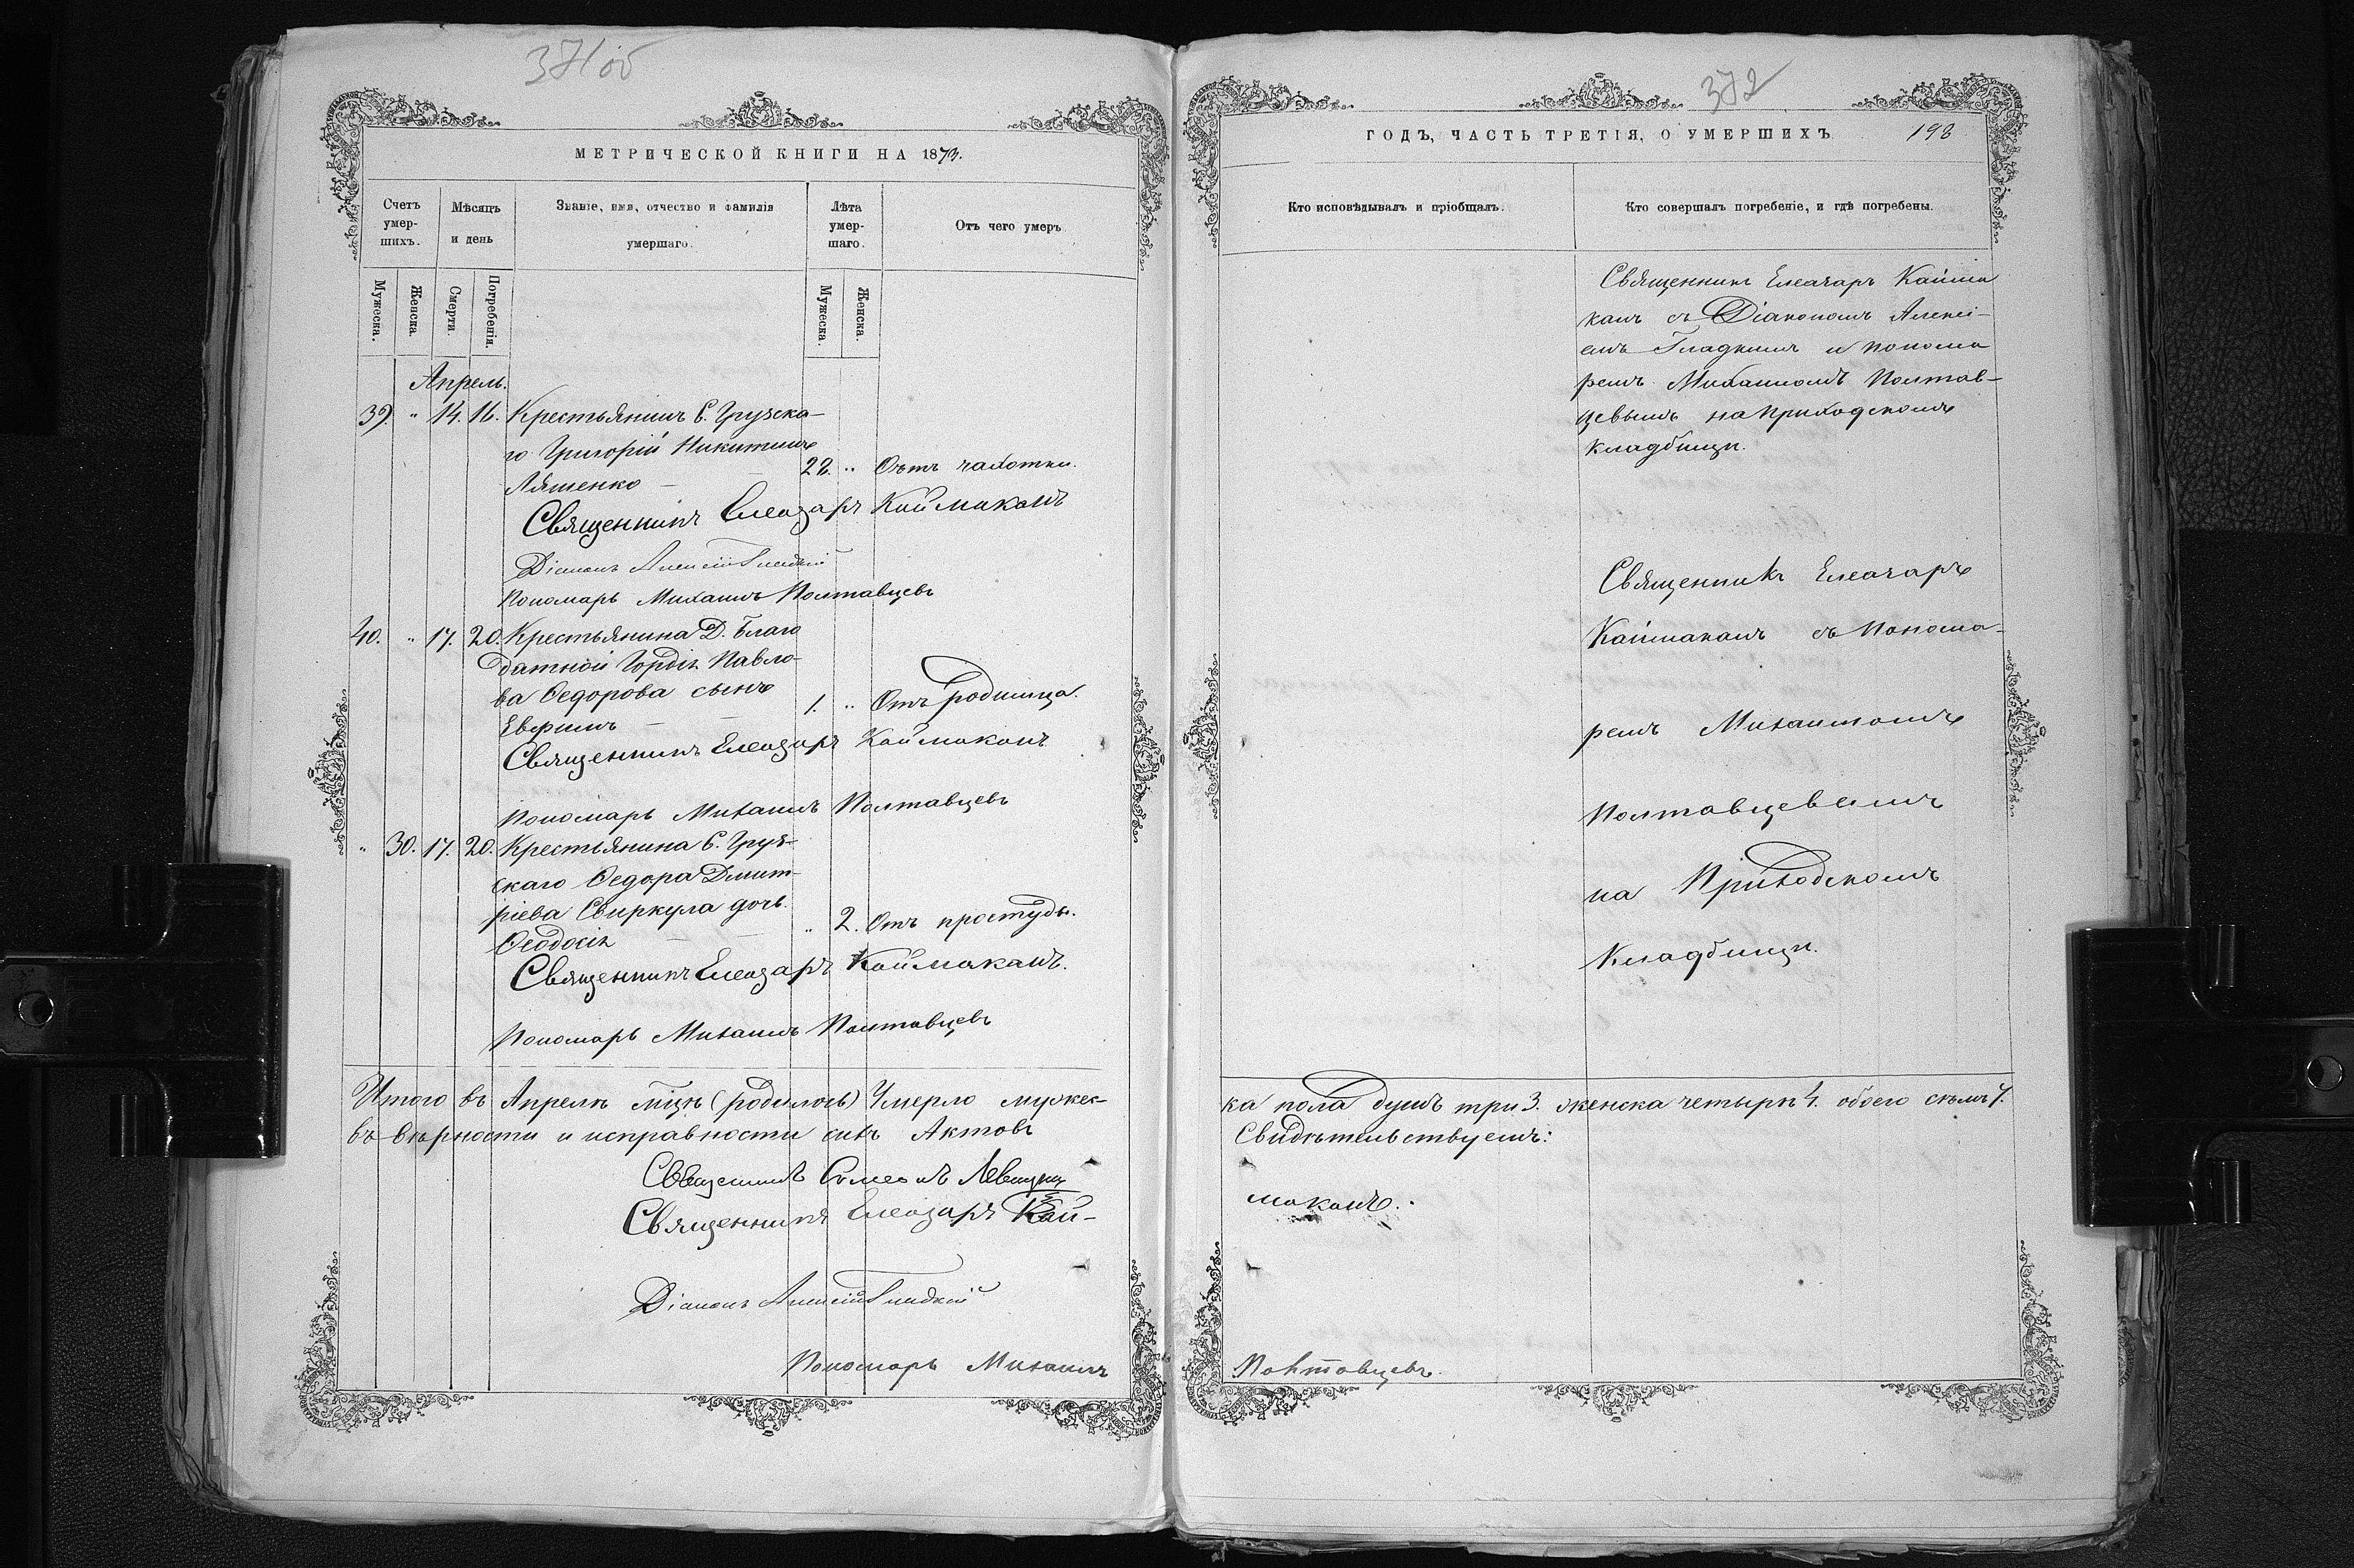 371 об
МЕТРИЧЕСКОЙ КНИГИ НА 1873.
Счетъ умер-шихъ.
Мѣсяцъ и день
Званіе, имя, отчество и фамилія умершаго.
Лѣта умер-шаго.
Отъ чего умеръ
Мужеска.
Женска.
Смерти.
Погребенія.
Мужеска.
Женска.
Апрель.
39. " 14. 16. Крестьянинъ С. Грузска-
го Григорій Никитинъ
Ляшенко — 22. " Отъ чахотки.
Священникъ Елеазаръ Каймаканъ
Діаконъ Алексій Гладкій
Пономарь Михаилъ Полтавцевъ
40. " 17. 20. Крестьянина Д. Благо
датной Гордѣя Павло-
ва Ѳедорова сынъ
Евфимъ — — 1. " Отъ родимца.
Священникъ Елеазаръ Каймаканъ
Пономарь Михаилъ Полтавцевъ
" 30. 17. 20. Крестьянина С. Груз-
скаго Ѳедора Дмит-
ріева Свиркула дочь
Ѳеодосія — — " 2. Отъ простуды.
Священникъ Елеазаръ Каймаканъ.
Пономарь Михаилъ Полтавцевъ
Итого въ Апрелѣ мцѣ (родилось) Умерло мужес-
въ вѣрности и исправности сихъ Актовъ
Священникъ Симеонъ Левицкій
Священникъ Елеазаръ Кай-
Діаконъ Алексій Гладкій
Пономарь Михаилъ
372
ГОДЪ, ЧАСТЬ ТРЕТІЯ, О УМЕРШИХЪ. 198
Кто исповѣдывалъ и пріобщалъ.
Кто совершалъ погребеніе, и гдѣ погребены.
Священникъ Елеазаръ Кайма
канъ съ Діакономъ Алексі-
емъ Гладкимъ и понома
ремъ Михаиломъ Полтав-
цевымъ на приходскомъ
кладбищѣ.
Священникъ Елеазаръ
Каймаканъ съ понома-
ремъ Михаиломъ
Полтавцевымъ
на Приходскомъ
Кладбищѣ.
ка пола душъ три 3. женска четырѣ 4. обоего семь 7.
Свидѣтельствуемъ:
маканъ.
Полтавцевъ.